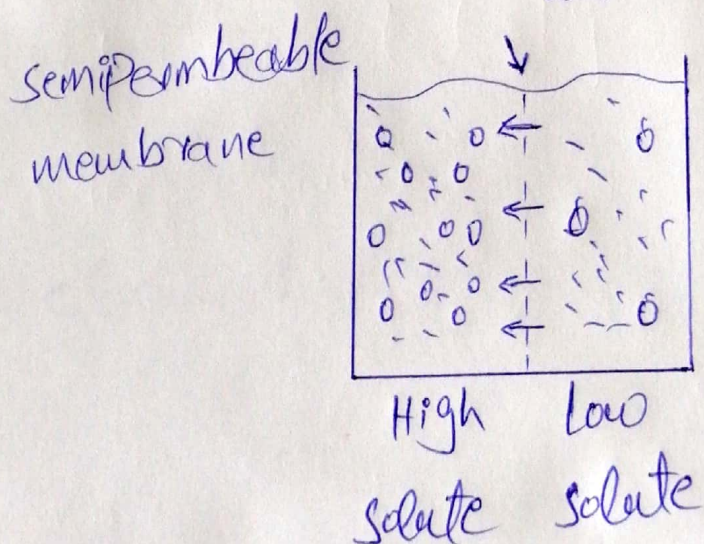 semipermbeable
membrane
High Low
solute solute